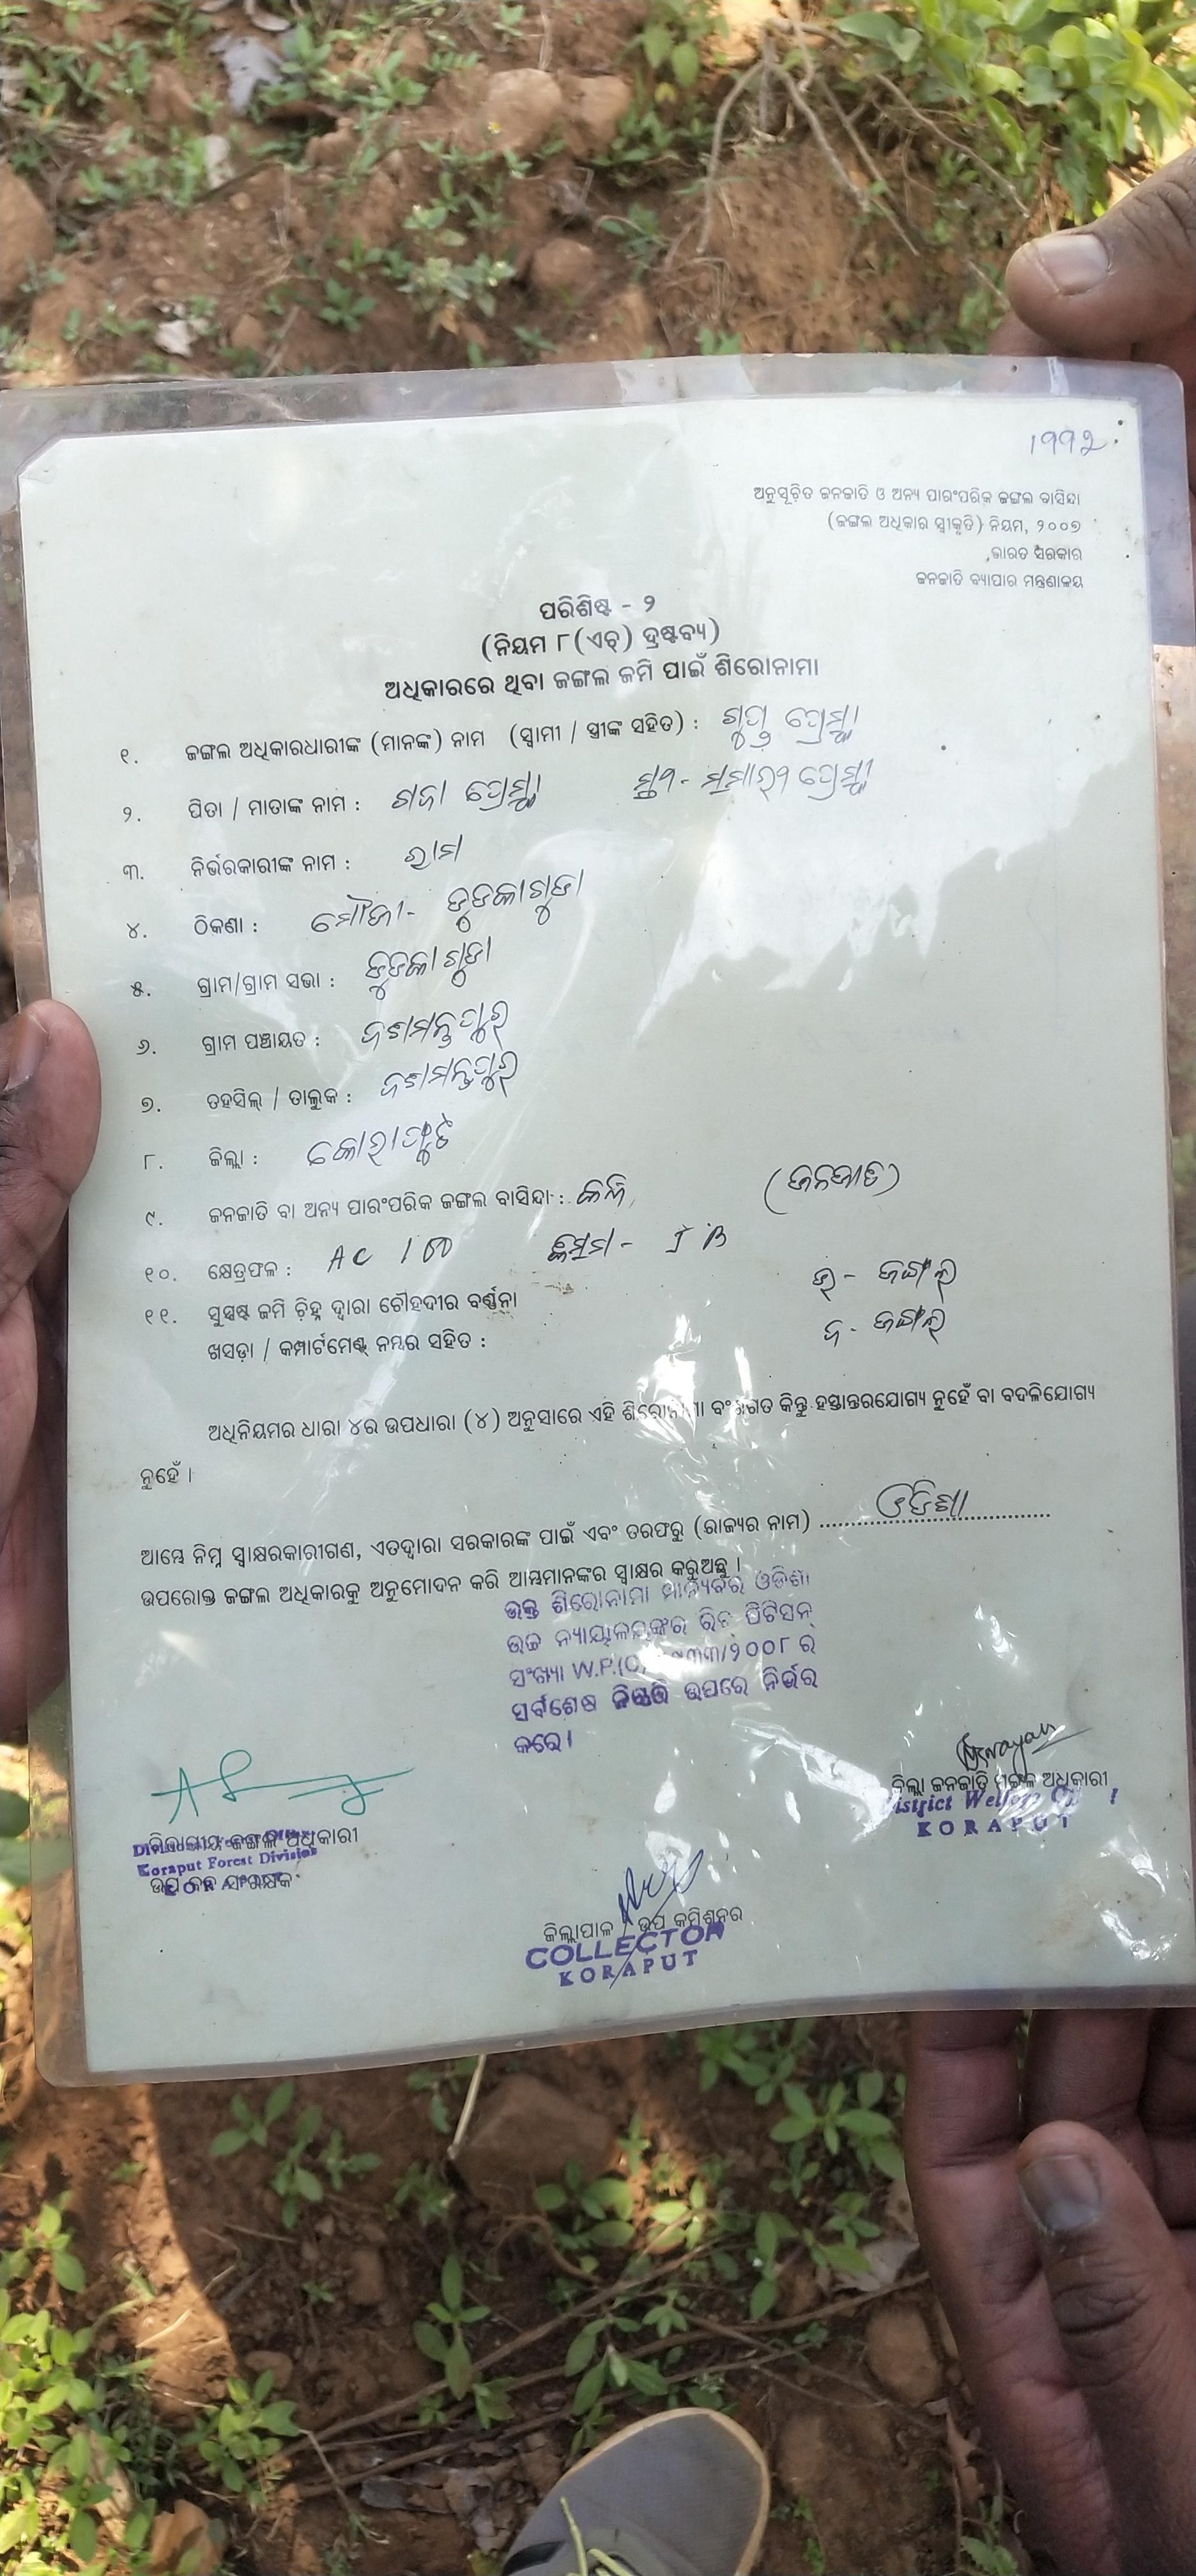 ୧୩୩୨
ଅନୁସୂଚିତ ଜନଜାତି ଓ ଅନ୍ୟ ପାରଂପରିକ ଜଙ୍ଗଲ ବାସିନ୍ଦା
(ଜଙ୍ଗଲ ଅଧିକାର ସ୍ୱୀକୃତି) ନିୟମ, ୨୦୦୭
ଭାରତ ସରକାର
ଜନଜାତି ବ୍ୟାପାର ମନ୍ତ୍ରଣାଳୟ
ପରିଶିଷ୍ଟ - ୨
(ନିୟମ ୮(ଏଚ୍) ଦ୍ରଷ୍ଟବ୍ୟ)
ଅଧିକାରରେ ଥିବା ଜଙ୍ଗଲ ଜମି ପାଇଁ ଶିରୋନାମା
୧. ଜଙ୍ଗଲ ଅଧିକାରଧାରୀଙ୍କ (ମାନଙ୍କ) ନାମ (ସ୍ୱାମୀ / ସ୍ତ୍ରୀଙ୍କ ସହିତ) :
୨. ପିତା / ମାତାଙ୍କ ନାମ :
୩. ନିର୍ଭରକାରୀଙ୍କ ନାମ : ରାମ
୪. ଠିକଣା : ମୌଜା- ଡୁଡକାଗୁଡା
୫. ଗ୍ରାମ/ଗ୍ରାମ ସଭା : ଡୁଡକାଗୁଡା
୬. ଗ୍ରାମ ପଞ୍ଚାୟତ : ଦଶମନ୍ତପୁର
୭. ତହସିଲ୍ / ତାଲୁକ : ଦଶମନ୍ତପୁର
୮. ଜିଲ୍ଲା : କୋରାପୁଟ
୯. ଜନଜାତି ବା ଅନ୍ୟ ପାରଂପରିକ ଜଙ୍ଗଲ ବାସିନ୍ଦା : (ଜନଜାତି)
୧୦. କ୍ଷେତ୍ରଫଳ : AC
ଉ- ଜଙ୍ଗଲ
୧୧. ସୁସ୍ପଷ୍ଟ ଜମି ଚିହ୍ନ ଦ୍ୱାରା ଚୌହଦୀର ବର୍ଣ୍ଣନା
ଦ- ଜଙ୍ଗଲ
ଖସଡ଼ା / କମ୍ପାର୍ଟମେଣ୍ଟ୍ ନମ୍ବର ସହିତ :
ଅଧିନିୟମର ଧାରା ୪ର ଉପଧାରା (୪) ଅନୁସାରେ ଏହି ଶିରୋନାମା ବଂଶଗତ କିନ୍ତୁ ହସ୍ତାନ୍ତରଯୋଗ୍ୟ ନୁହେଁ ବା ବଦଳିଯୋଗ୍ୟ
ନୁହେଁ ।
ଆମ୍ଭେ ନିମ୍ନ ସ୍ୱାକ୍ଷରକାରୀଗଣ, ଏତଦ୍ଦ୍ୱାରା ସରକାରଙ୍କ ପାଇଁ ଏବଂ ତରଫରୁ (ରାଜ୍ୟର ନାମ) ଓଡିଶା
ଉପରୋକ୍ତ ଜଙ୍ଗଲ ଅଧିକାରକୁ ଅନୁମୋଦନ କରି ଆମ୍ଭମାନଙ୍କର ସ୍ୱାକ୍ଷର କରୁଅଛୁ ।
ଉକ୍ତ ଶିରୋନାମା ମାନ୍ୟବର ଓଡିଶା
ଉଚ୍ଚ ନ୍ୟାୟାଳୟଙ୍କର ରିଟ ପିଟିସନ୍
ସଂଖ୍ୟା W.P.(C) ୩୩/୨୦୦୮ ର
ସର୍ବଶେଷ ନିଷ୍ପତ୍ତି ଉପରେ ନିର୍ଭର
କରେ।
ଜିଲ୍ଲା ଜନଜାତି ମଙ୍ଗଳ ଅଧିକାରୀ
District Welfare
KORAPUT
ବିଭାଗୀୟ ଜଙ୍ଗଲ ଅଧିକାରୀ
Koraput Forest Division
ଉପ ବନ ସଂରକ୍ଷକ
ଜିଲ୍ଲାପାଳ / ଉପ କମିଶନର
COLLECTOR
KORAPUT